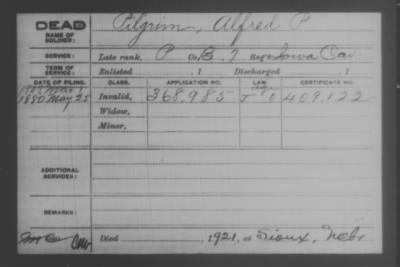 DEAD
NAME OF SOLDIER: Pilgrim, Alfred P
SERVICE: Late rank, P Co. B, 7 Reg't Iowa Cav.
TERM OF SERVICE: Enlisted , 1 Discharged , 1
DATE OF FILING. CLASS. APPLICATION NO. LAW. CERTIFICATE NO.
1880 May 25 Invalid, 368.985 409.122
Widow,
Minor,
ADDITIONAL SERVICES:
REMARKS:
Died , 1921, at Sioux, Nebr.